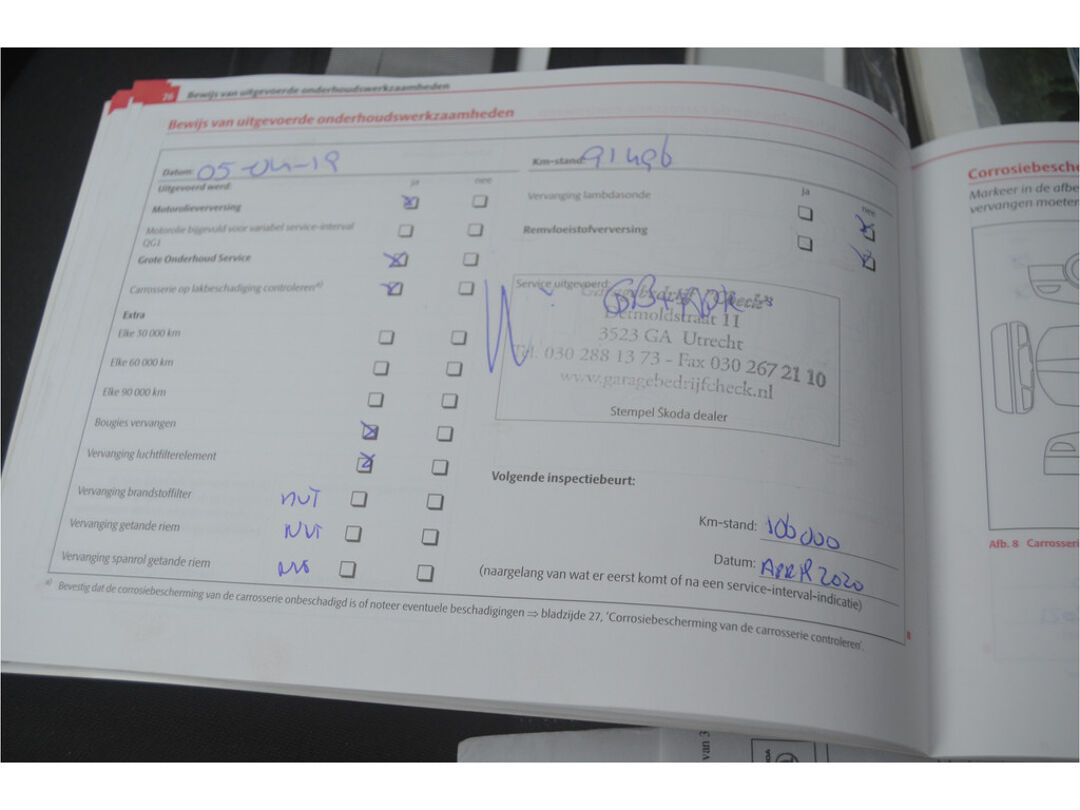 26 Bewijs van uitgevoerde onderhoudswerkzaamheden
Bewijs van uitgevoerde onderhoudswerkzaamheden
Datum: 05-04-19
Km-stand: 91496
Uitgevoerd werd:
ja nee
Motorolieverversing
Motorolie bijgevuld voor variabel service-interval
QG1
Grote Onderhoud Service
Carrosserie op lakbeschadiging controleren a)
Extra
Elke 30 000 km
Elke 60 000 km
Elke 90 000 km
Bougies vervangen
Vervanging luchtfilterelement
Vervanging brandstoffilter NVT
Vervanging getande riem NVT
Vervanging spanrol getande riem
ja nee
Vervanging lambdasonde
Remvloeistofverversing
Service uitgevoerd:
Detmoldstraat 11
3523 GA Utrecht
Tel. 030 288 13 73 - Fax 030 267 21 10
www.garagebedrijfcheck.nl
Stempel Škoda dealer
Volgende inspectiebeurt:
Km-stand: 106000
Datum: APRIL 2020
(naargelang van wat er eerst komt of na een service-interval-indicatie)
a) Bevestig dat de corrosiebescherming van de carrosserie onbeschadigd is of noteer eventuele beschadigingen ⇒ bladzijde 27, 'Corrosiebescherming van de carrosserie controleren'.
Corrosiebesche
Markeer in de afbe
vervangen moeten
Afb. 8 Carrosseri
van 3